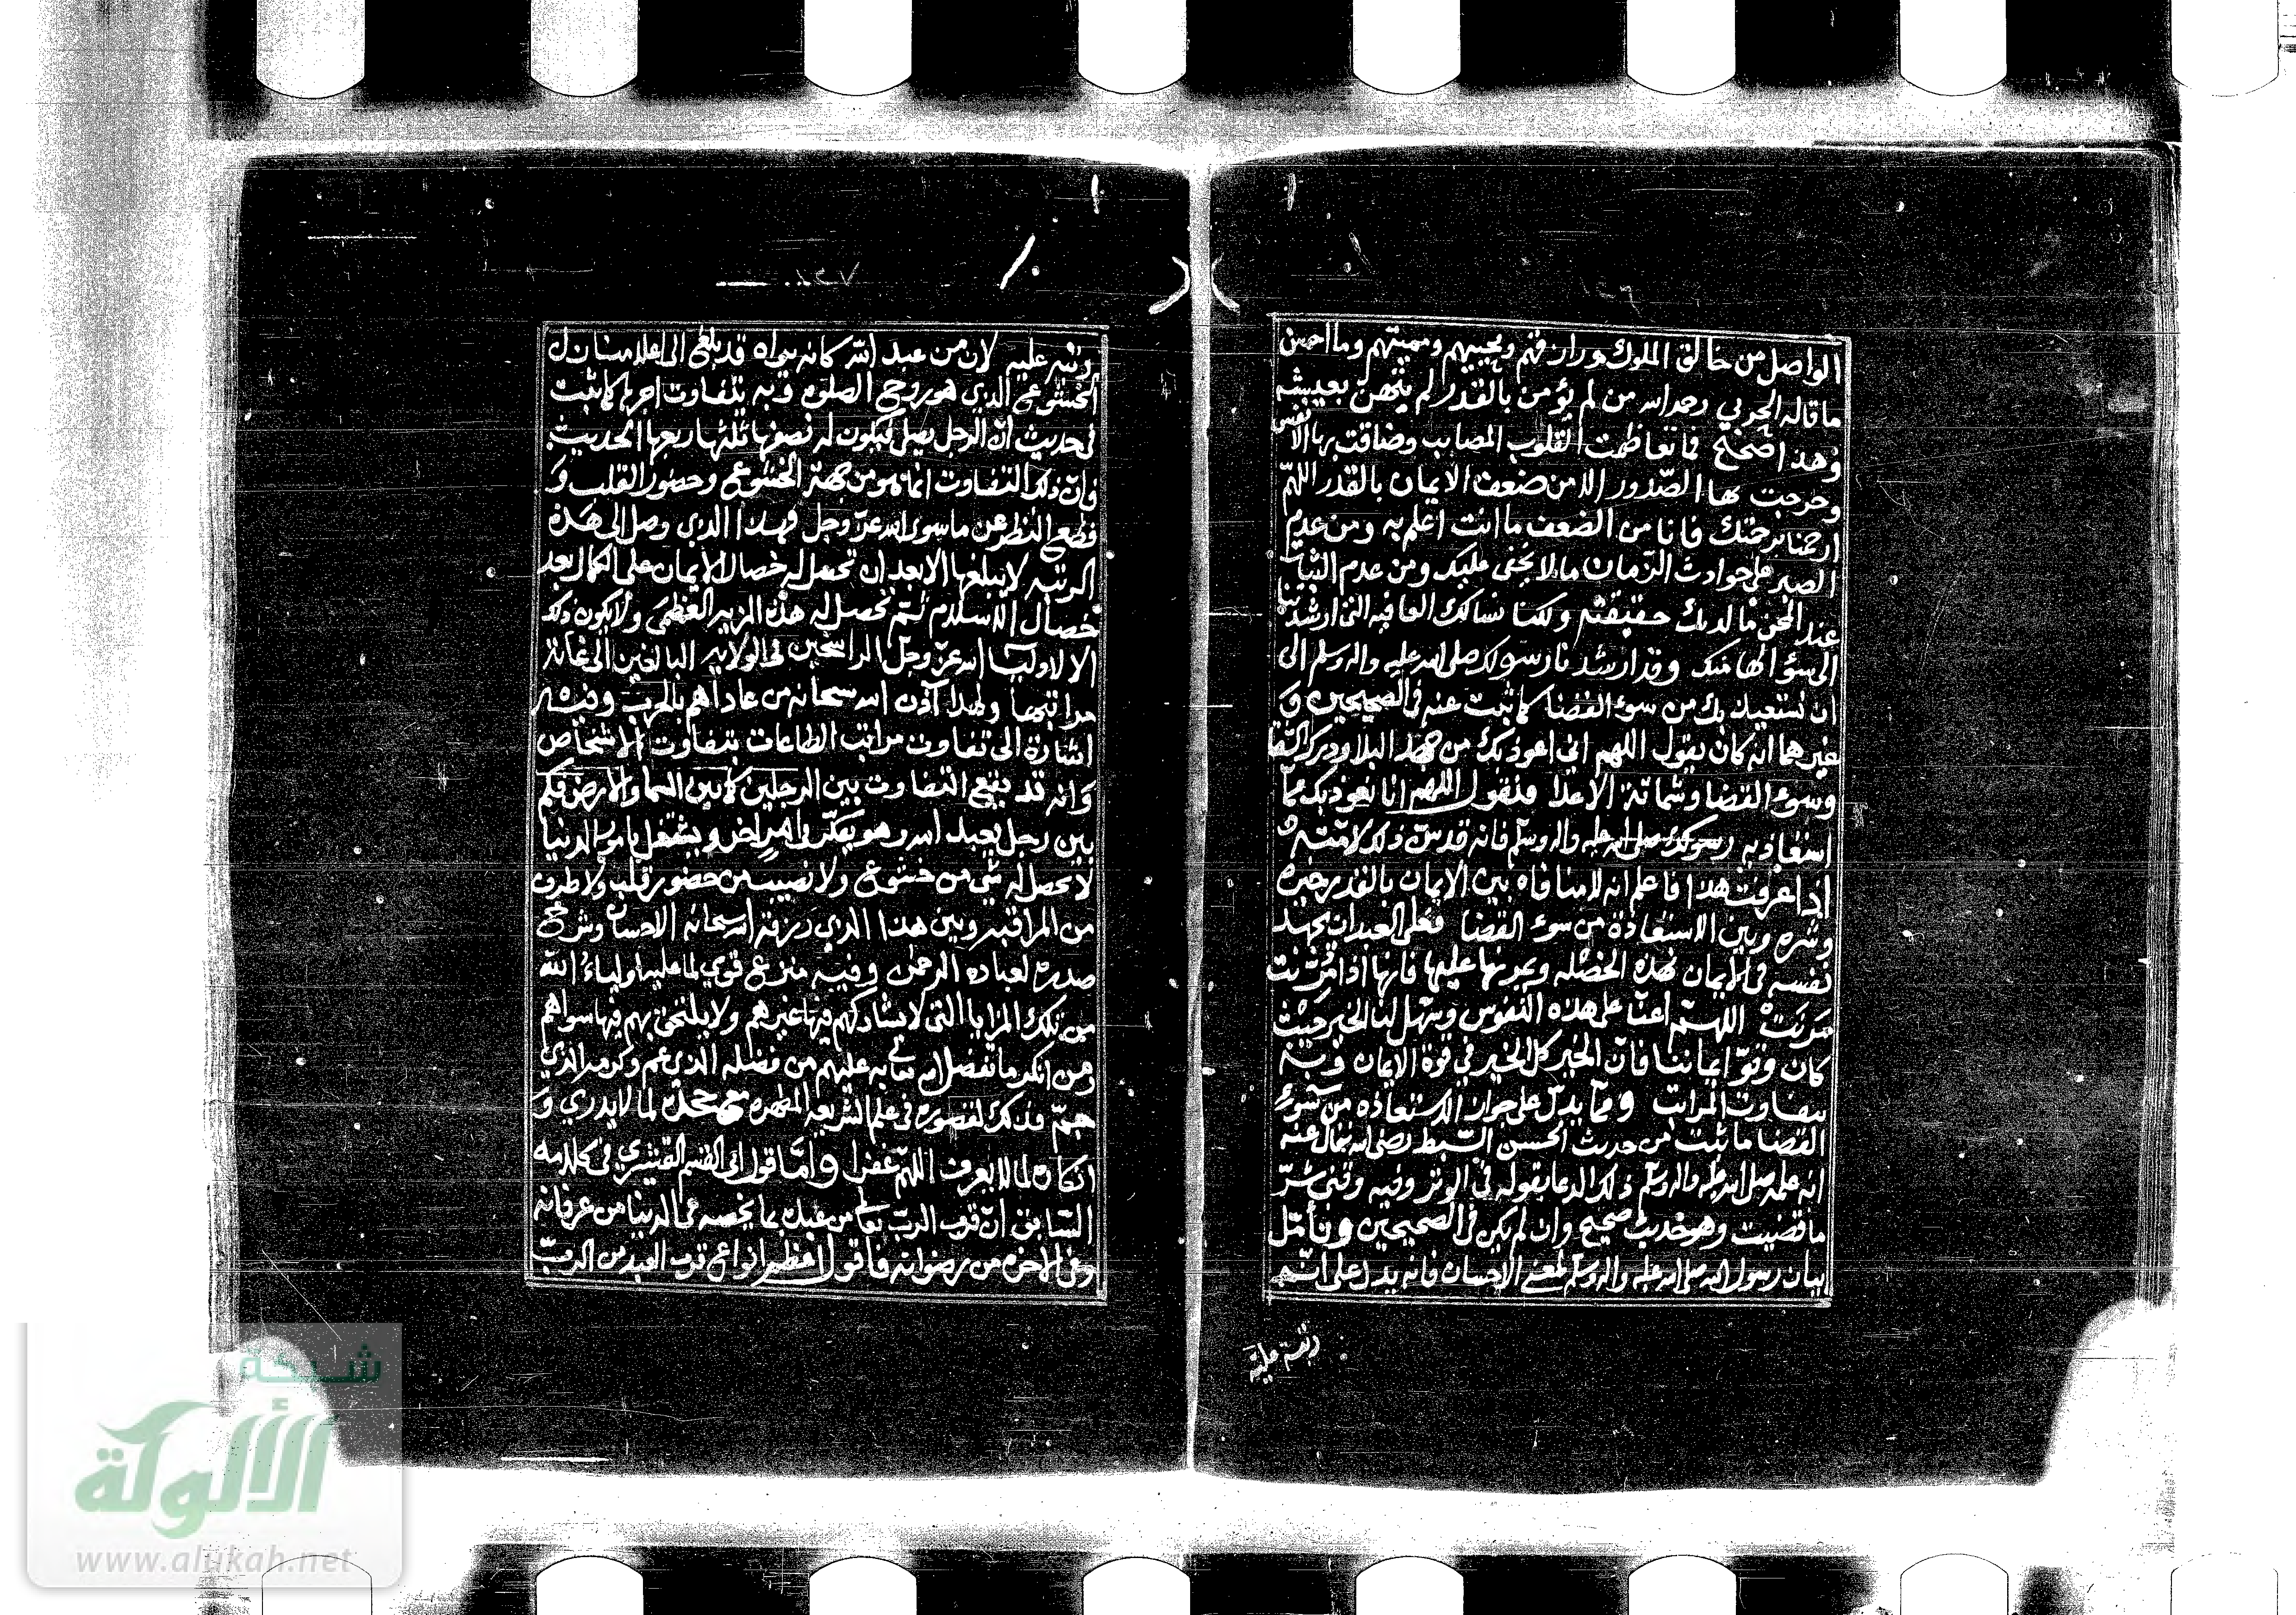 ١٢٦
الواصل من خالق الملوك ورازقهم ومحييهم ومميتهم وما احسن
ما قاله الحربي رحمه الله من لم يؤمن بالقدر لم يتهن بعيشه
وهذا صحيح فما تعاظمت القلوب المصايب وضاقت بها الانفس
وحرجت بها الصدور الا من ضعف الايمان بالقدر اللهم
ارحمنا برحمتك فانا من الضعف ما انت اعلم به ومن عدم
الصبر على حوادث الزمان ما لا يخفى عليك ومن عدم الثبات
عند المحن ما لديك حقيقته ولكنا نسالك العافيه التى ارشدتنا
الى سؤالها منك وقد ارشدنا رسولك صلى الله عليه واله وسلم الى
ان نستعيذ بك من سوء القضا كما ثبت عنه في الصحيحين و
غيرهما انه كان يقول اللهم انى اعوذ بك من جهد البلا ودرك الشقا
وسوء القضا وشماتة الاعدا فنقول اللهم انا نعوذ بك مما
استعاذ به رسولك صلى الله عليه واله وسلم فانه قد سن ذلك لامته
اذا عرفت هذا فاعلم انه لا منافاه بين الايمان بالقدر خيره
وشره وبين الاستعاذة من سوء القضا فعلى العبد ان يجهد
نفسه في الايمان بهذه الخصله ويمرنها عليها فانها اذا مُرّنت
مَرنَت اللهم اعنا على هذه النفوس وسهل لنا الخير حيث
كان وقوّ ايماننا فان الخير كل الخير في قوة الايمان وبه
تتفاوت المراتب ومما يدل على جواز الاستعاذه من سوء
القضا ما ثبت من حديث الحسن السبط رضى الله تعالى عنه
انه علمه صلى الله عليه واله وسلم ذلك الدعا بقوله في الوتر وفيه وقنى شرّ
ما قضيت وهو حديث صحيح وان لم يكن في الصحيحين وتأمل
بيان رسول الله صلى الله عليه واله وسلم لمعنى الاحسان فانه يدل على انّه
رتبة علية
١٢٧
رتبه عليه لان من عبد الله كانه يراه قد بلغ الى اعلا منازل
الخشوع الذي هو روح الصلوه وبه تتفاوت اجرها كما ثبت
في حديث انّ الرجل يصلى فيكون له نصفها ثلثها ربعها الحديث
فان ذلك التفاوت انما هو من جهة الخشوع وحضور القلب و
قطع النظر عن ما سوى الله عز وجل فهذا الذي وصل الى هذه
الرتبه لا يبلغها الا بعد ان تحصل له خصال الايمان على الكمال بعد
خصال الاسلام ثم تحصل له هذه المزيه العظمى ولا يكون ذلك
الا لاوليا الله عز وجل الراسخين فى الولايه البالغين الى غاية
مراتبها ولهذا آذن الله سبحانه من عاداهم بالحرب وفيه
اشارة الى تفاوت مراتب الطاعات بتفاوت الاشخاص
وانه قد يقع التفاوت بين الرجلين كما بين السما والارض فكم
بين رجل يعبد الله وهو يفكر في امراض ويشتغل بامور الدنيا
لا يحصل له شي من خشوع ولا نصيب من حضور قلب ولا طرف
من المراقبه وبين هذا الذي رزقه الله سبحانه الاحسان وشرح
صدره لعباده الرحمن وفيه منزع قوي لما عليه اولياءُ الله
من تلك المزايا التى لا يشاركهم فيها غيرهم ولا يلتحق بهم فيها سواهم
ومن انكر ما تفضل الله تعالى به عليهم من فضله الذى عم وكرمه الذي
جمّ فذلك لقصوره في علم الشريعه المطهره لما لا يدري و
انكاره لما لا يعرف اللهم غفرا واما قول ابى القسم القشيري في كلامه
السابق انّ قرب الربّ تعالى من عبده بما يخصه فى الدنيا من عرفانه
وفى الاخره من رضوانه فاقول اعظم انواع قرب العبد من الربّ
شبكة
الألوكة
www.alukah.net